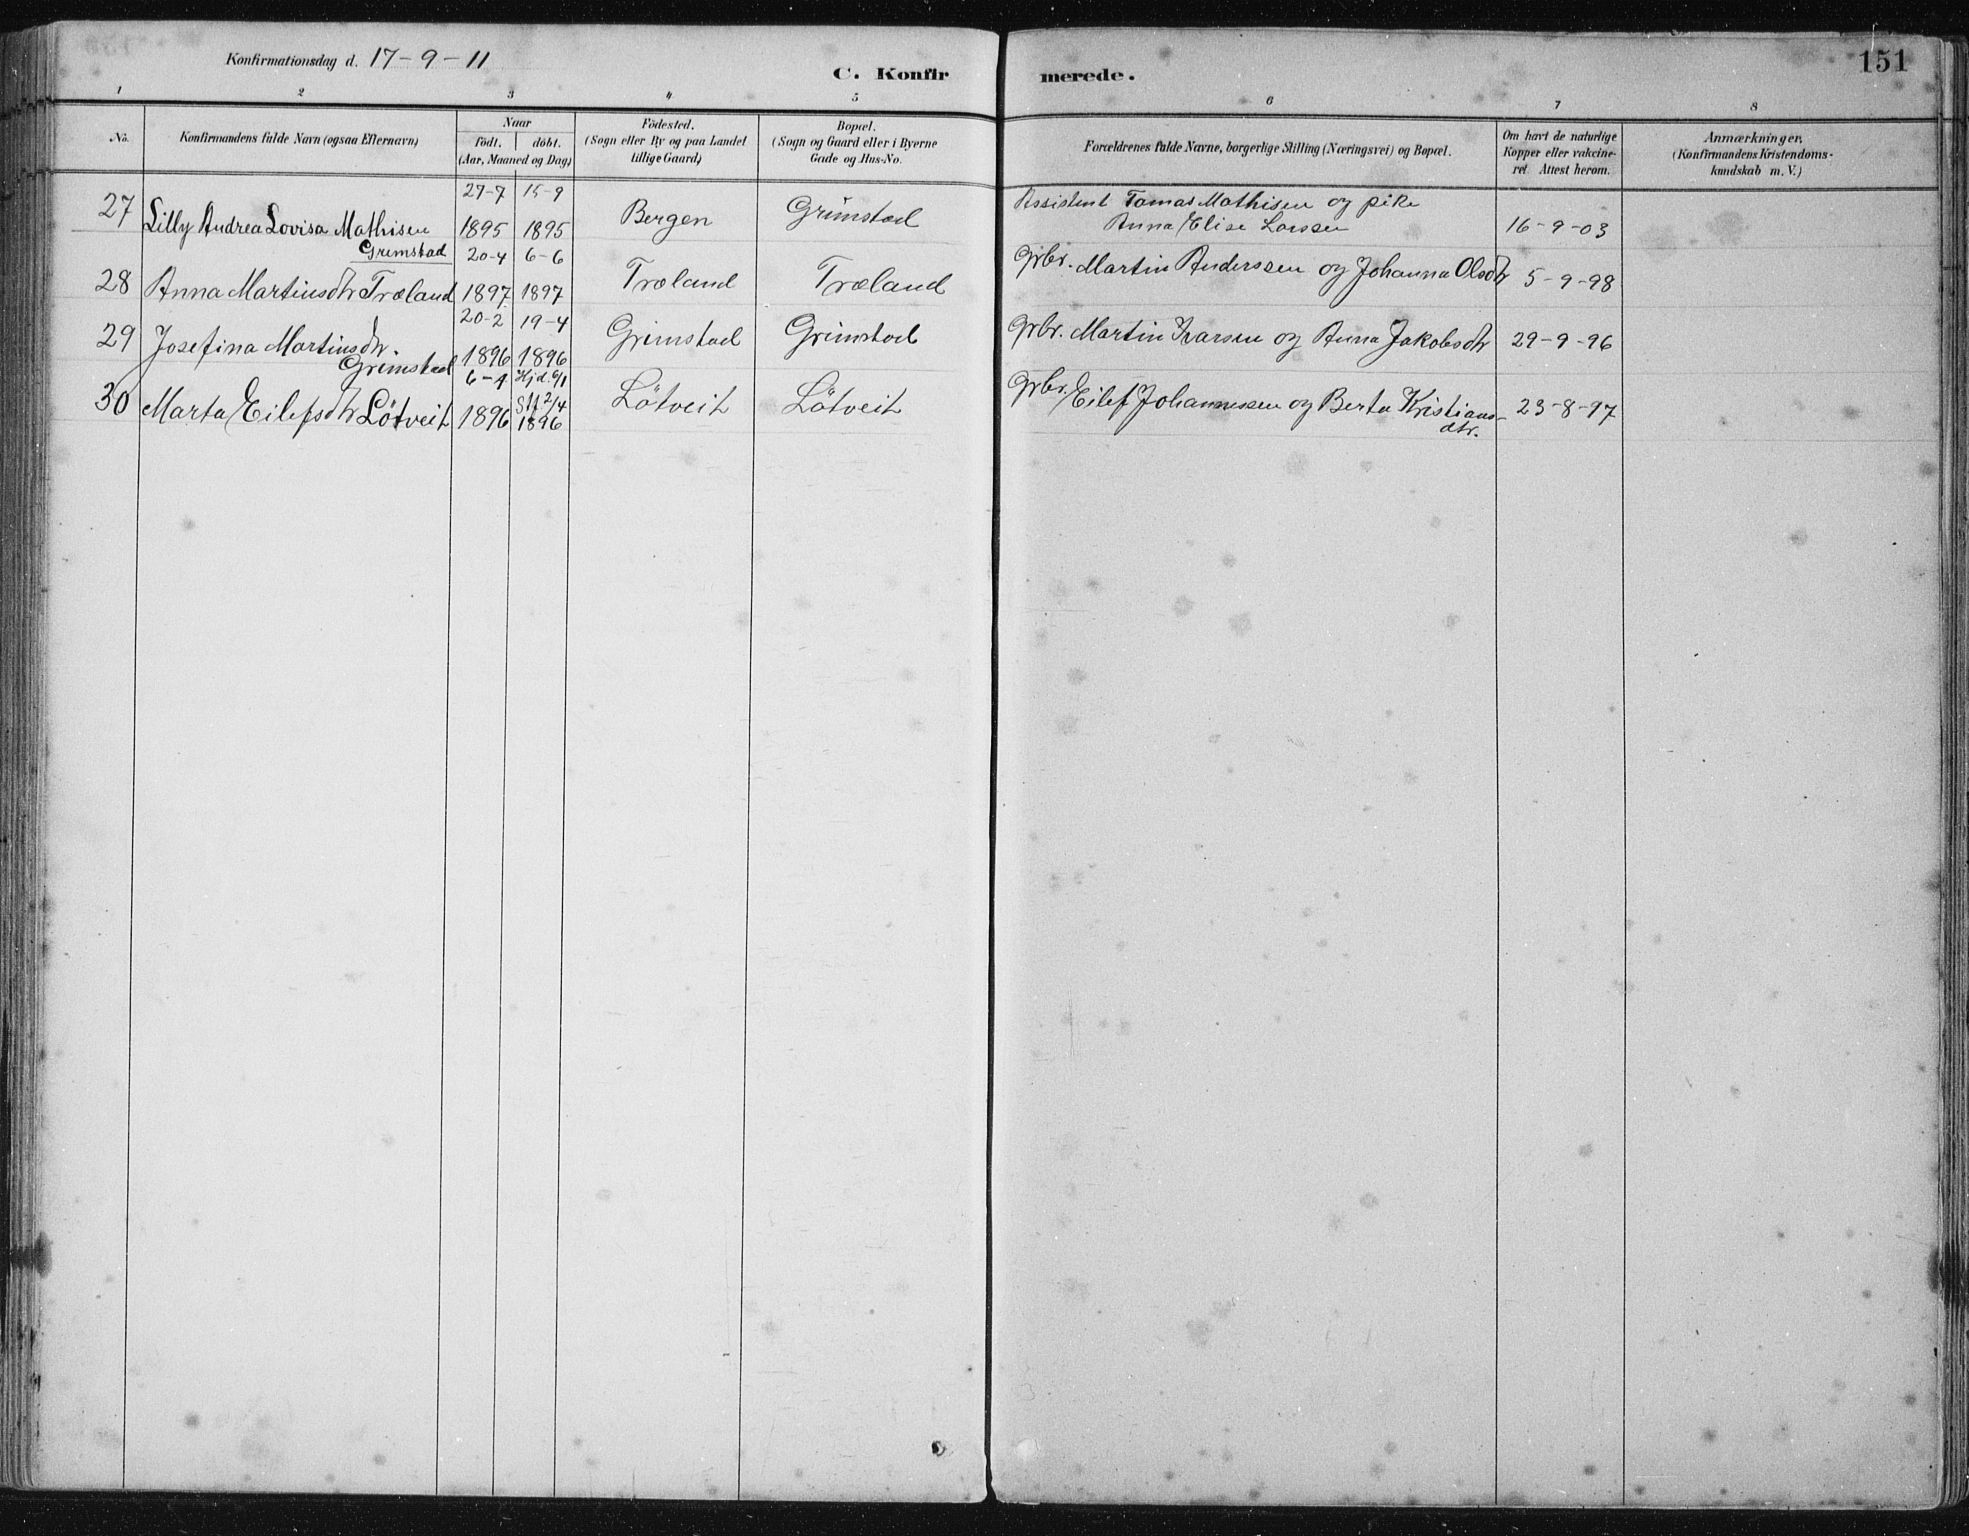 Konfirmationsdag d. 17-9-11
C. Konfirmerede.
151
1 2 3 4 5 6 7 8
No.
Konfirmandens fulde Navn (ogsaa Efternavn)
Naar
födt. döbt.
(Aar, Maaned og Dag)
Födested.
(Sogn eller By og paa Landet
tillige Gaard)
Bopæl.
(Sogn og Gaard eller i Byerne
Gade og Hus-No.
Forældrenes fulde Navne, borgerlige Stilling (Næringsvei) og Bopæl.
Om havt de naturlige
Kopper eller vakcine-
ret. Attest herom.
Anmærkninger,
(Konfirmandens Kristendoms-
kundskab m. V.)
27 Lilly Andrea Lovisa Mathisen
Grimstad
27-7 1895
15-9 1895
Bergen
Grimstad
Assistent Tomas Mathisen og pike
Anna Elise Larssen
16-9-03
28 Anna Martinsdtr Træland
20-4 1897
6-6 1897
Træland
Træland
Grbr. Martin Anderssen og Johanna Olsdtr
5-9-98
29 Josefina Martinsdtr.
Grimstad
20-2 1896
19-4 1896
Grimstad
Grimstad
Grbr. Martin Ivarsen og Anna Jakobsdtr
29-9-96
30 Marta Eilefsdtr Lötveit
6-1 1896
Hjd. 6/1
Stf 2/4
1896
Lötveit
Lötveit
Grbr. Eilef Johannessen og Berta Kristians-
dtr.
23-8-97